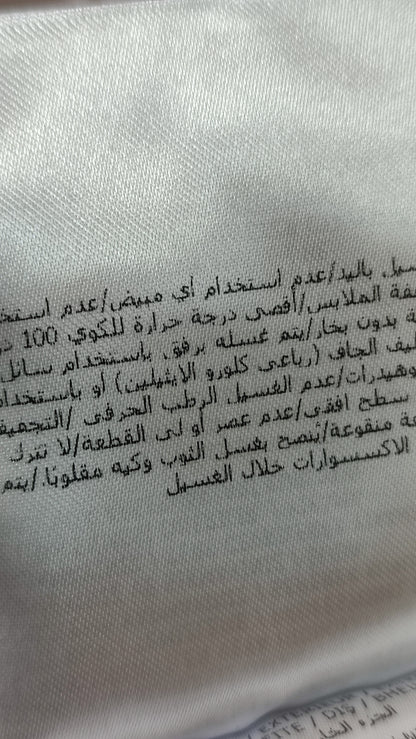 باليد/عدم استخدام أي مبيض/عدم
الملابس/أقصى درجة حرارة للكوي 100
بدون بخار/يتم غسله برفق باستخدام سائل
الجاف (رباعي كلورو الايثيلين) أو باستخدام
عدم الغسيل الرطب الحرفي /التجفيف
سطح افقي/عدم عصر أو لي القطعة/لا تترك
منقوعة/يُنصح بغسل الثوب وكيه مقلوبًا./يتم
الاكسسوارات خلال الغسيل